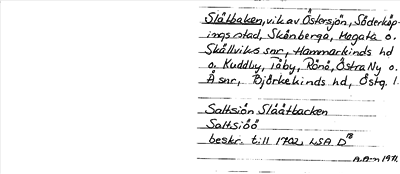 Slätbaken, vik av Östersjön, Söderköp-
ings stad, Skönberga, Mogata o.
Skällviks snr, Hammarkinds hd
o. Kuddby, Tåby, Rönö, Östra Ny o.
Å snr, Björkekinds hd, Östg. l.
Saltsiön Slååtbacken
Saltsiöö
beskr. till 1702, LSA D 18